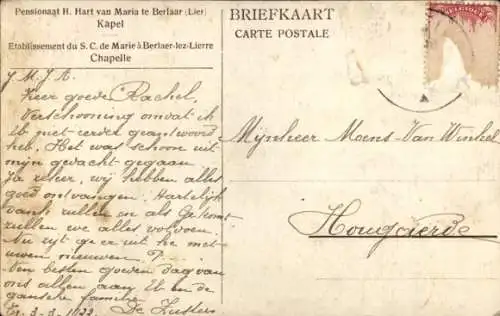 Pensionaat H. Hart van Maria te Berlaar (Lier)
Kapel
Etablissement du S. C. de Marie à Berlaer-lez-Lierre
Chapelle
BRIEFKAART
CARTE POSTALE
J. M. J. A.
Zeer goede Rachel,
Verschooning omdat ik
U niet eerder geantwoord
heb. Het was schoon uit
mijn gedacht gegaan.
Ja zeker, wij hebben alles
goed ontvangen. Hartelijk
dank zullen en als
zullen we alles voldoen.
Nu zijt ge er uit he met
uwen nieuwen
Den besten goeden dag van
ons allen aan U en de
gansche familie.
De Zusters
3-3-1922
Mijnheer Moens-Van Winkel
Hougaerde